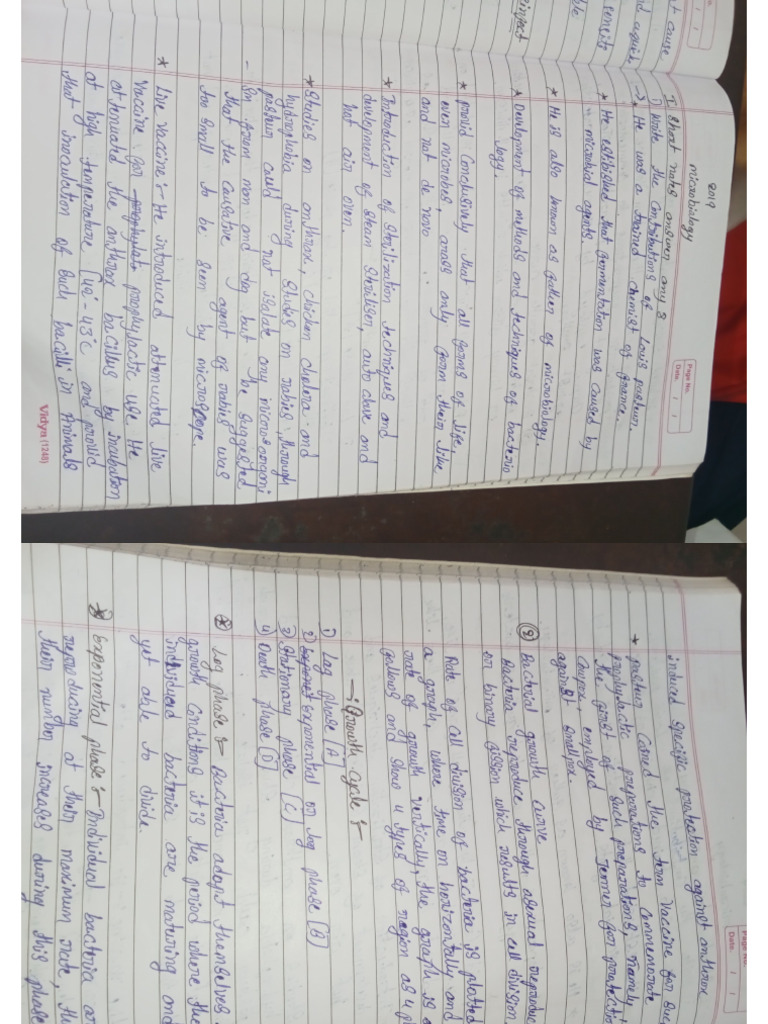 nt cause
nd aquire
sensite
ble
project
Page No.
Date. / /
2019
microbiology
I Short notes answer any 8
1) Write the contributions of Louis pasteur.
→ He was a trained chemist of france.
* He establihed that fermentation was caused by
microbial agents.
* He is also known as father of microbiology.
* Development of methods and techniques of bacterio
logy.
* provid conclusively that all forms of life,
even microbes, arose only from their like
and not de novo
* Introduction of sterilization techniques and
development of steam steriliser, auto clave and
hot air oven.
* Studies on anthrax, chicken cholera and
hydrophobia during studes on rabies, through
pasteur could not isolate any microorgani
- sm from man and dog but he suggested
that the causative agent of rabies was
too small to be seen by microscope.
* Live vaccine :- He introduced attenuated live
vaccine for prophylactic use He
attenuated the anthrax bacillus by incubation
at high temperature (42°-43°c and provid
that inoculation of such bacilli in Animals
Vidya (1248)
Page No.
Date. / /
induced specific protection against anthrax
* pasteur coined the term vaccine for suc
prophylactic preparations to commemorate
the first of such preparations, namely
cowpox, employed by Jenner for protectio
against smallpox.
Bacterial growth curve
Bacteria reproduce through asexual reproduc
or binary fission which results in cell division
Rate of cell division of bacteria is plotted
a graph, where time on horizontally and
rate of growth vertically, the graph is a
follows and show 4 types of region as 4 p
→ Growth cycle :-
1) Lag phase (A)
2) exponential or log phase (B)
3) Stationary phase (C)
4) Death phase (D)
* Lag phase :- Bacteria adapt themselves
growth conditions it is the period where the
individual bacteria are maturing and
yet able to divide.
* exponential phase :- Individual bacteria ar
reproducing at their maximum rate, th
their number increases during this phase